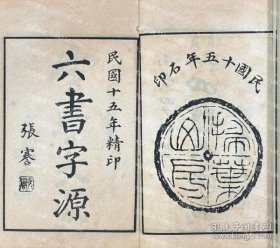 民國十五年石印
掃葉山房
民國十五年精印
六書字源
張謇